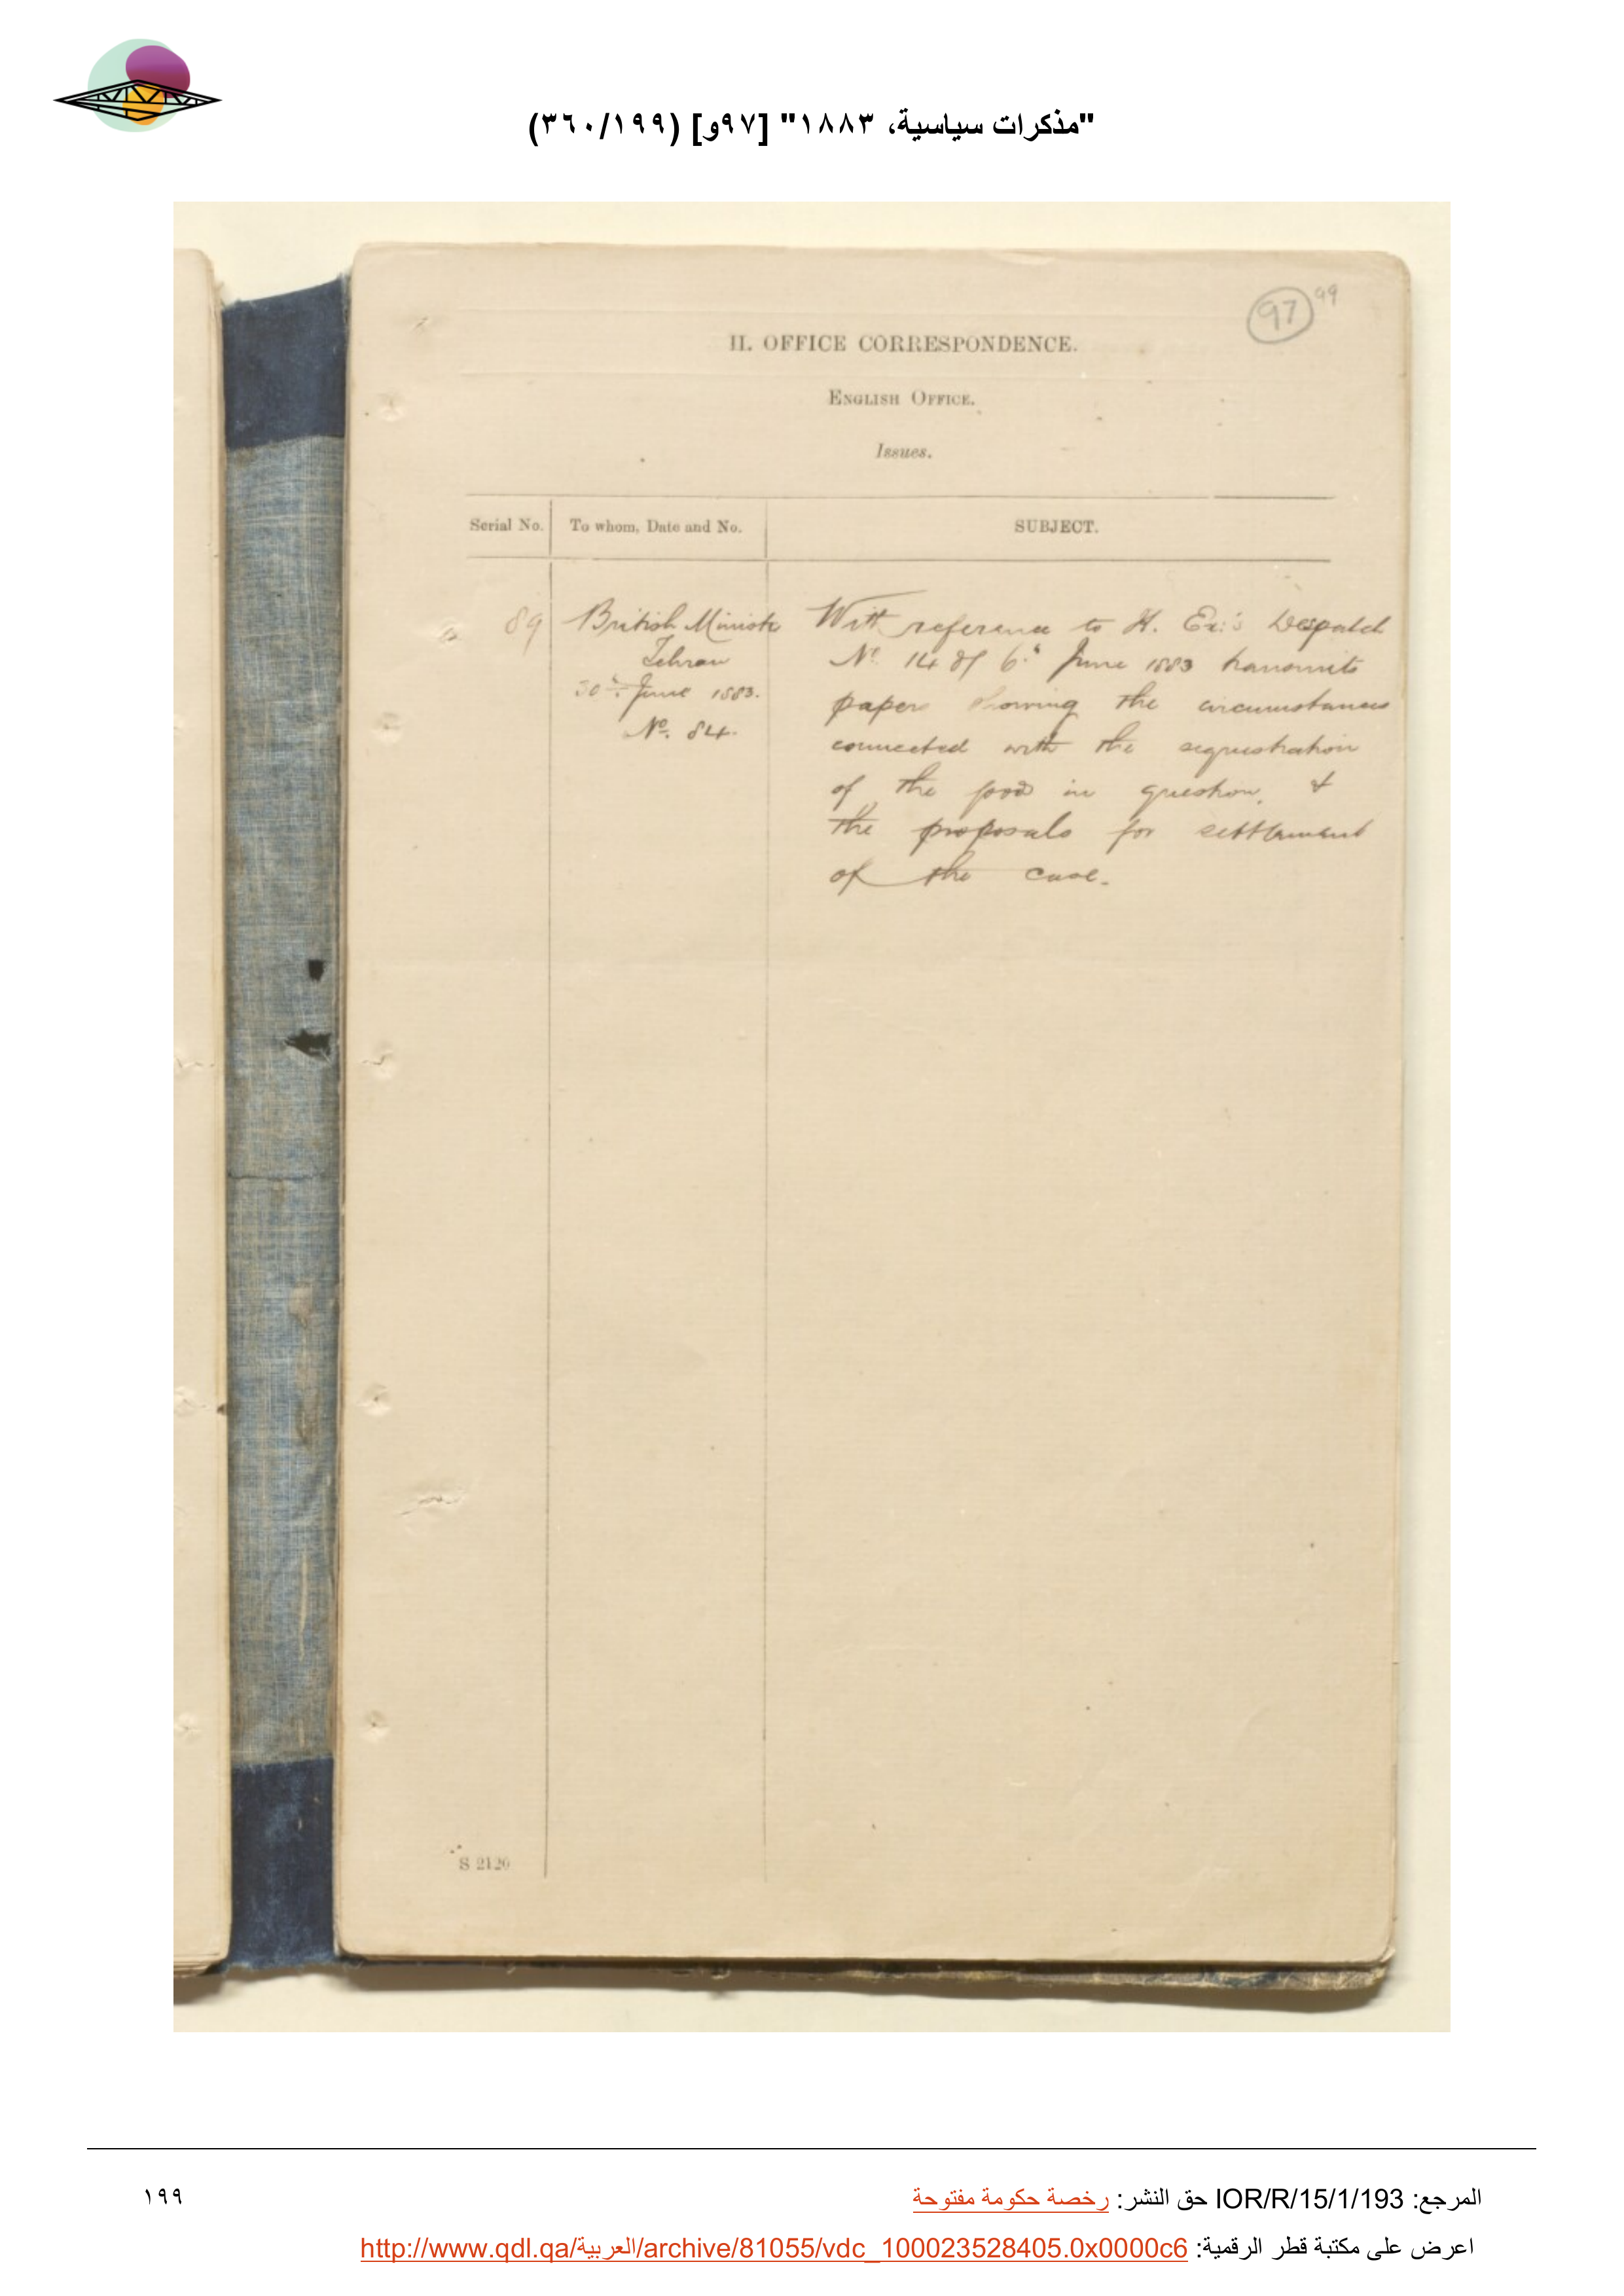 "مذكرات سياسية، ١٨٨٣" [٩٧و] (٣٦٠/١٩٩)
97 99
II. OFFICE CORRESPONDENCE.
ENGLISH OFFICE.
Issues.
Serial No. To whom, Date and No. SUBJECT.
89 British Ministr With reference to H. Ex:'s Despatch
Tehran No 14 of 6th June 1883 transmits
30th June 1883. papers showing the circumstances
No. 84. connected with the sequestration
of the food in question, &
the proposals for settlement
of the case.
S 2120
المرجع: IOR/R/15/1/193 حق النشر: رخصة حكومة مفتوحة ١٩٩
اعرض على مكتبة قطر الرقمية: http://www.qdl.qa/العربية/archive/81055/vdc_100023528405.0x0000c6